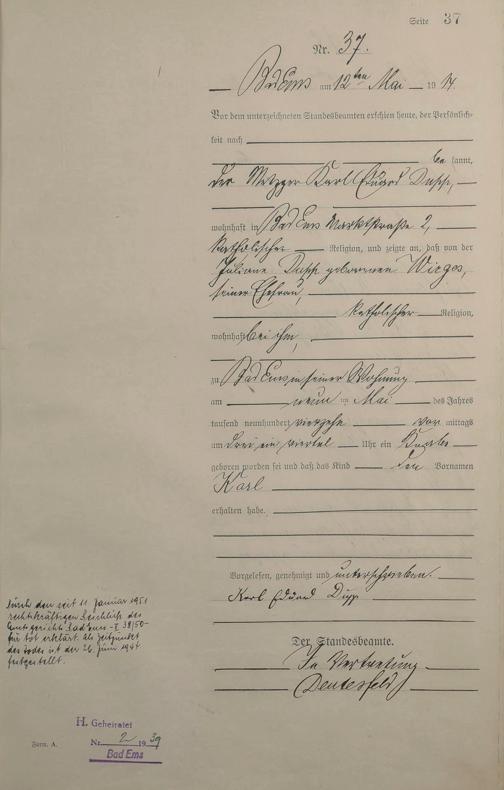 Seite 37
Nr. 37.
Bad Ems am 12ten Mai 19 14.
Vor dem unterzeichneten Standesbeamten erschien heute, der Persönlich-
keit nach
be kannt,
der Metzger Karl Eduard
wohnhaft in Bad Ems Marktstraße 2,
katholischer Religion, und zeigte an, daß von der
Juliane geborenen Wirges,
seiner Ehefrau,
katholischer Religion,
wohnhaft bei ihm,
zu Bad Ems in seiner Wohnung
am neun ten Mai des Jahres
tausend neunhundert vierzehn vor mittags
um drei ein viertel Uhr ein Knabe
geboren worden sei und daß das Kind den Vornamen
Karl
erhalten habe.
Vorgelesen, genehmigt und unterschrieben.
Karl Eduard
Der Standesbeamte.
In Vertretung
Durch den seit 11. Januar 1951
rechtskräftigen Beschluß des
Amtsgerichts Bad Ems - II 38/50 -
für tot erklärt. Als Zeitpunkt
des Todes ist der 26. Juni 1944
festgestellt.
H. Geheiratet
Nr. 2 19 39
Bad Ems
Form. A.